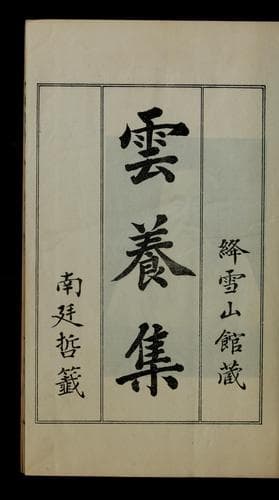 絳雪山館藏
雲養集
南廷哲籤